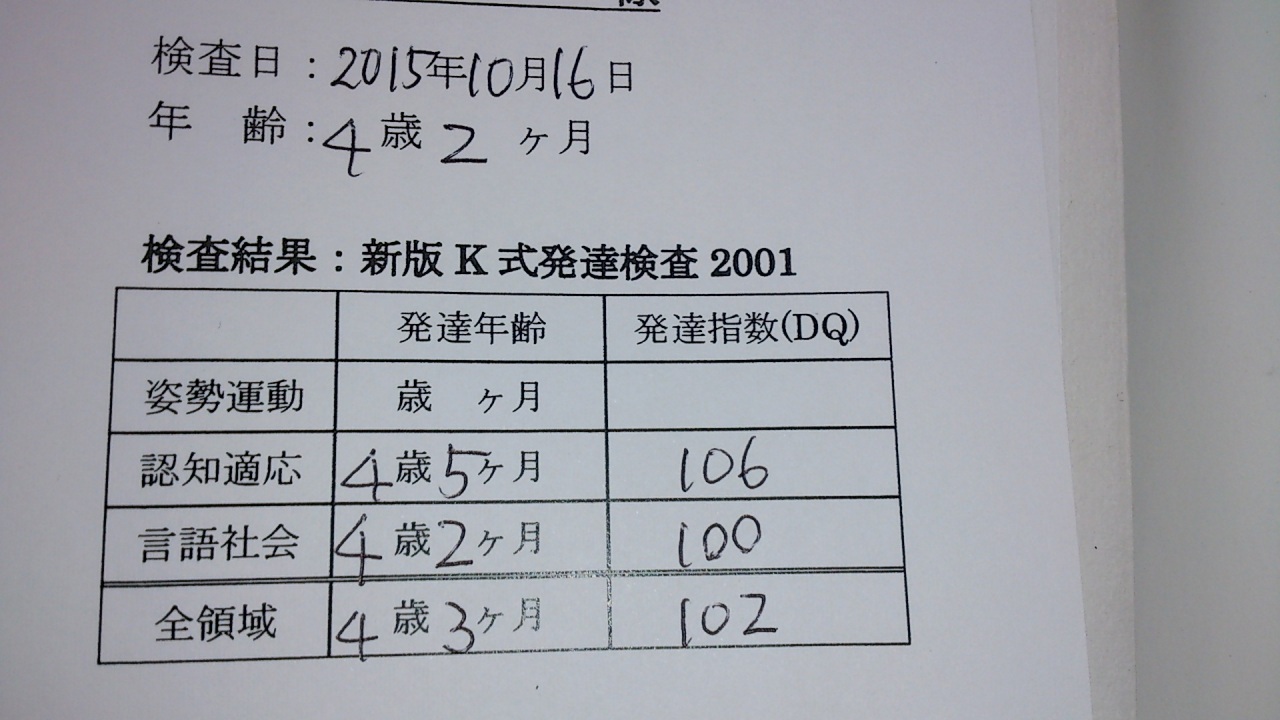 様
検査日：2015年10月16日
年　齢：4歳2ヶ月
検査結果：新版K式発達検査2001
発達年齢 発達指数(DQ)
姿勢運動 歳 ヶ月
認知適応 4歳5ヶ月 106
言語社会 4歳2ヶ月 100
全領域 4歳3ヶ月 102